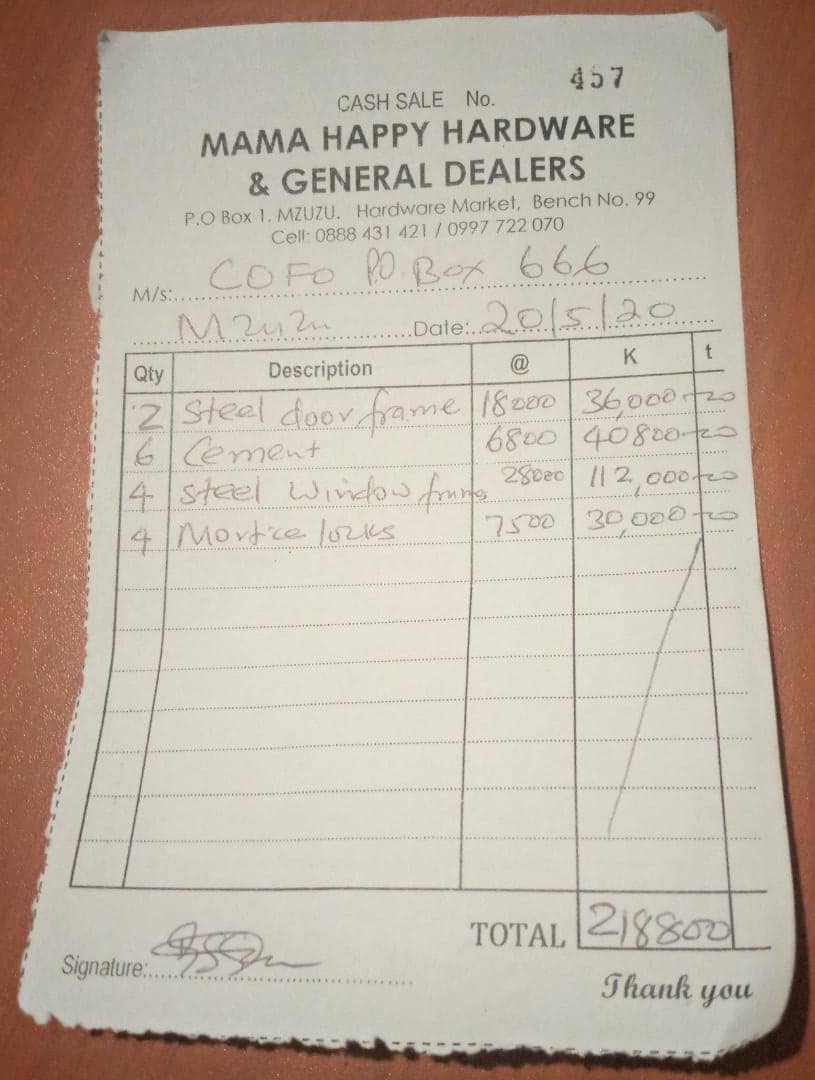 457
CASH SALE No.
MAMA HAPPY HARDWARE
& GENERAL DEALERS
P.O Box 1, MZUZU. Hardware Market, Bench No. 99
Cell: 0888 431 421 / 0997 722 070
M/s: COFO P.O. Box 666
Mzuzu Date: 20/5/20
Qty Description @ K t
2 Steel door frame 18000 36,000-00
6 Cement 6800 40800-00
4 Steel Window 28000 112,000-00
4 Mortice locks 7500 30,000-00
TOTAL 218800
Signature:
Thank you